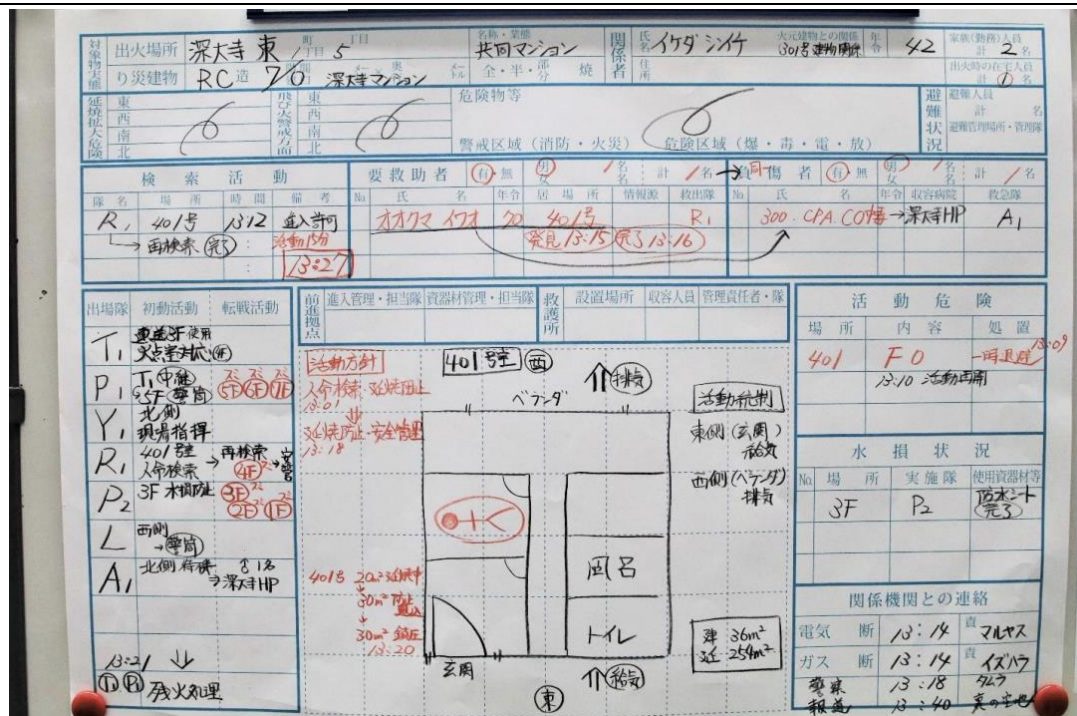 対象物実態
出火場所 深大寺東 町 丁目 1丁目 5
名称・業態 共同マンション
関係者 氏名 イケダ シンイケ
火元建物との関係 301号 建物関係
年令 42
家族(勤務)人員 計 2名
り災建物 RC造 7/0 深大寺マンション
全・半・部分 焼
住所
出火時の在宅人員 計 ① 名
延焼拡大危険 東 西 南 北
飛び火警戒方面 東 西 南 北
危険物等
警戒区域(消防・火災) 危険区域(爆・毒・電・放)
避難状況 避難人員 計 名
避難管理場所・管理隊
検索活動
隊名 場所 時間 備考
R1 401号 1312 進入許可
→再検索 完了 活動15分
13:27
要救助者 有・無 男 女 1名 名 計 1名
No. 氏名 年令 居場所 情報源 救出隊
オオクマ イワオ 70 401号 R1
発見13:15 完了13:16
負傷者 有・無 男 女 1名 名 計 1名
No. 氏名 年令 収容病院 救急隊
300・CPA.CO →深大寺HP A1
出場隊 初動活動 転戦活動
T1 3F使用
P1 T1中継 →5F 警筒 5F 6F 7F
Y1 北側 現場指揮
R1 401号室 人命検索 → 再検索 4F
P2 3F 水損防止 3F 2F 1F
L 西側 →警筒
A1 北側待機 1名 ⇒深大寺HP
13:21
T1 P1 残火処理
前進拠点 進入管理・担当隊 資器材管理・担当隊
救護所 設置場所 収容人員 管理責任者・隊
活動方針
人命検索・延焼阻止
13:01
延焼防止・安全管理
13:18
401号室 西
排気
ベランダ
風呂
トイレ
玄関
給気
東
401号 20m² 延焼中
30m²
30m² 鎮圧
13:20
活動統制
東側(玄関)
給気
西側(ベランダ)
排気
建 36m²
延 254m²
活動危険
場所 内容 処置
401 FO 一時退避 13:09
13:10 活動再開
水損状況
No. 場所 実施隊 使用資器材等
3F P2 防水シート(完了)
関係機関との連絡
電気 断 13:14 責 マルヤス
ガス 断 13:14 責 イズハラ
警察 13:18 タムラ
報道 13:40